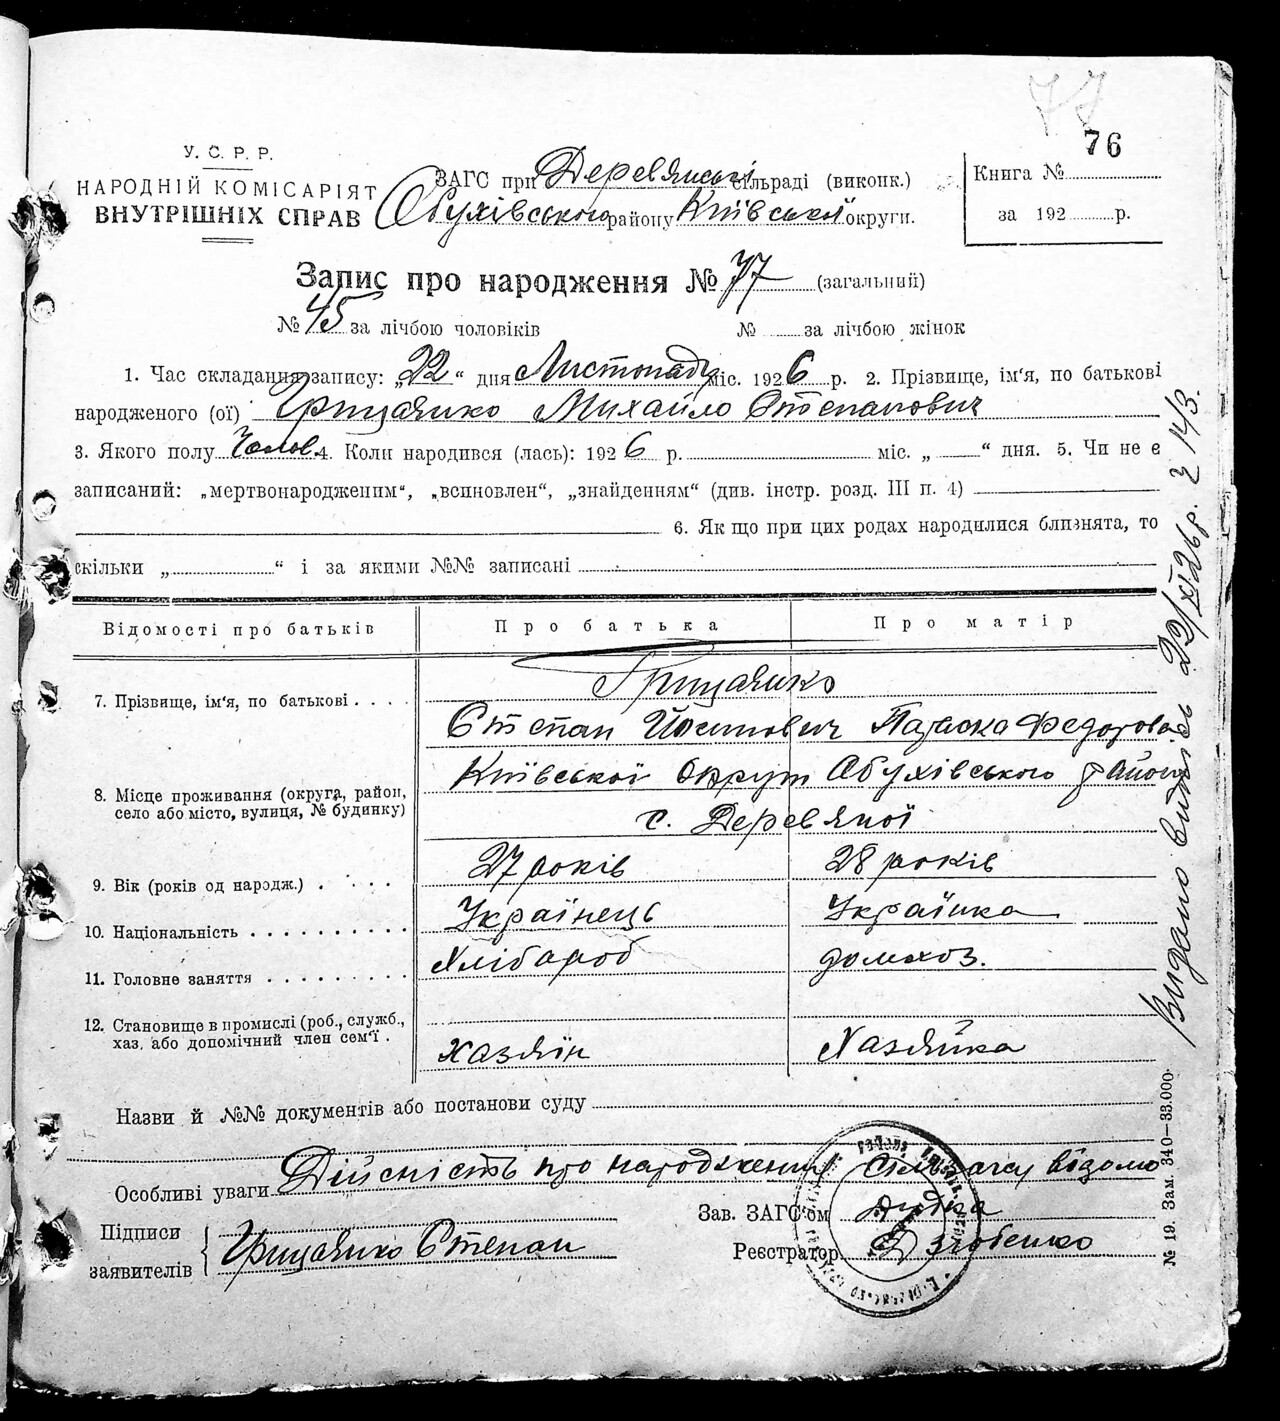 77
76
У. С. Р. Р.
НАРОДНІЙ КОМІСАРІЯТ
ВНУТРІШНІХ СПРАВ
ЗАГС при Деревянські сільраді (виконк.)
Обухівського району Київської округи.
Книга №
за 192 р.
Запис про народження № 77 (загальний)
№ 45 за лічбою чоловіків № за лічбою жінок
1. Час складання запису: „22“ дня Листопада міс. 1926 р. 2. Прізвище, ім'я, по батькові
народженого (ої) Грицаянко Михайло Степанович
3. Якого полу Чолов. 4. Коли народився (лась): 1926 р. міс. „ “ дня. 5. Чи не є
записаний: „мертвонародженим“, „всиновлен“, „знайденням“ (див. інстр. розд. III п. 4)
6. Як що при цих родах народилися близнята, то
скільки „ “ і за якими №№ записані
Відомості про батьків Про батька Про матір
7. Прізвище, ім'я, по батькові . . . . Грицаянко
Степан Йосипович Параска Федорова
8. Місце проживання (округа, район,
село або місто, вулиця, № будинку)
Київської округи Обухівського району
с. Деревяної
9. Вік (років од народж.) . . . . 27 років 28 років
10. Національність . . . . . . . . . . Українець Українка
11. Головне заняття . . . . . . . . Хлібороб домохоз.
12. Становище в промислі (роб., служб.,
хаз. або допомічний член сем'ї . хазяїн Хазяйка
Назви й №№ документів або постанови суду
Особливі уваги Дійсність про народження сільраді відомо
Підписи
заявителів
Грицаянко Степан
Зав. ЗАГС'ом
Реєстратор
Видано випись 22/XI 26 р. з 143.
№ 19. Зам. 340—33.000.